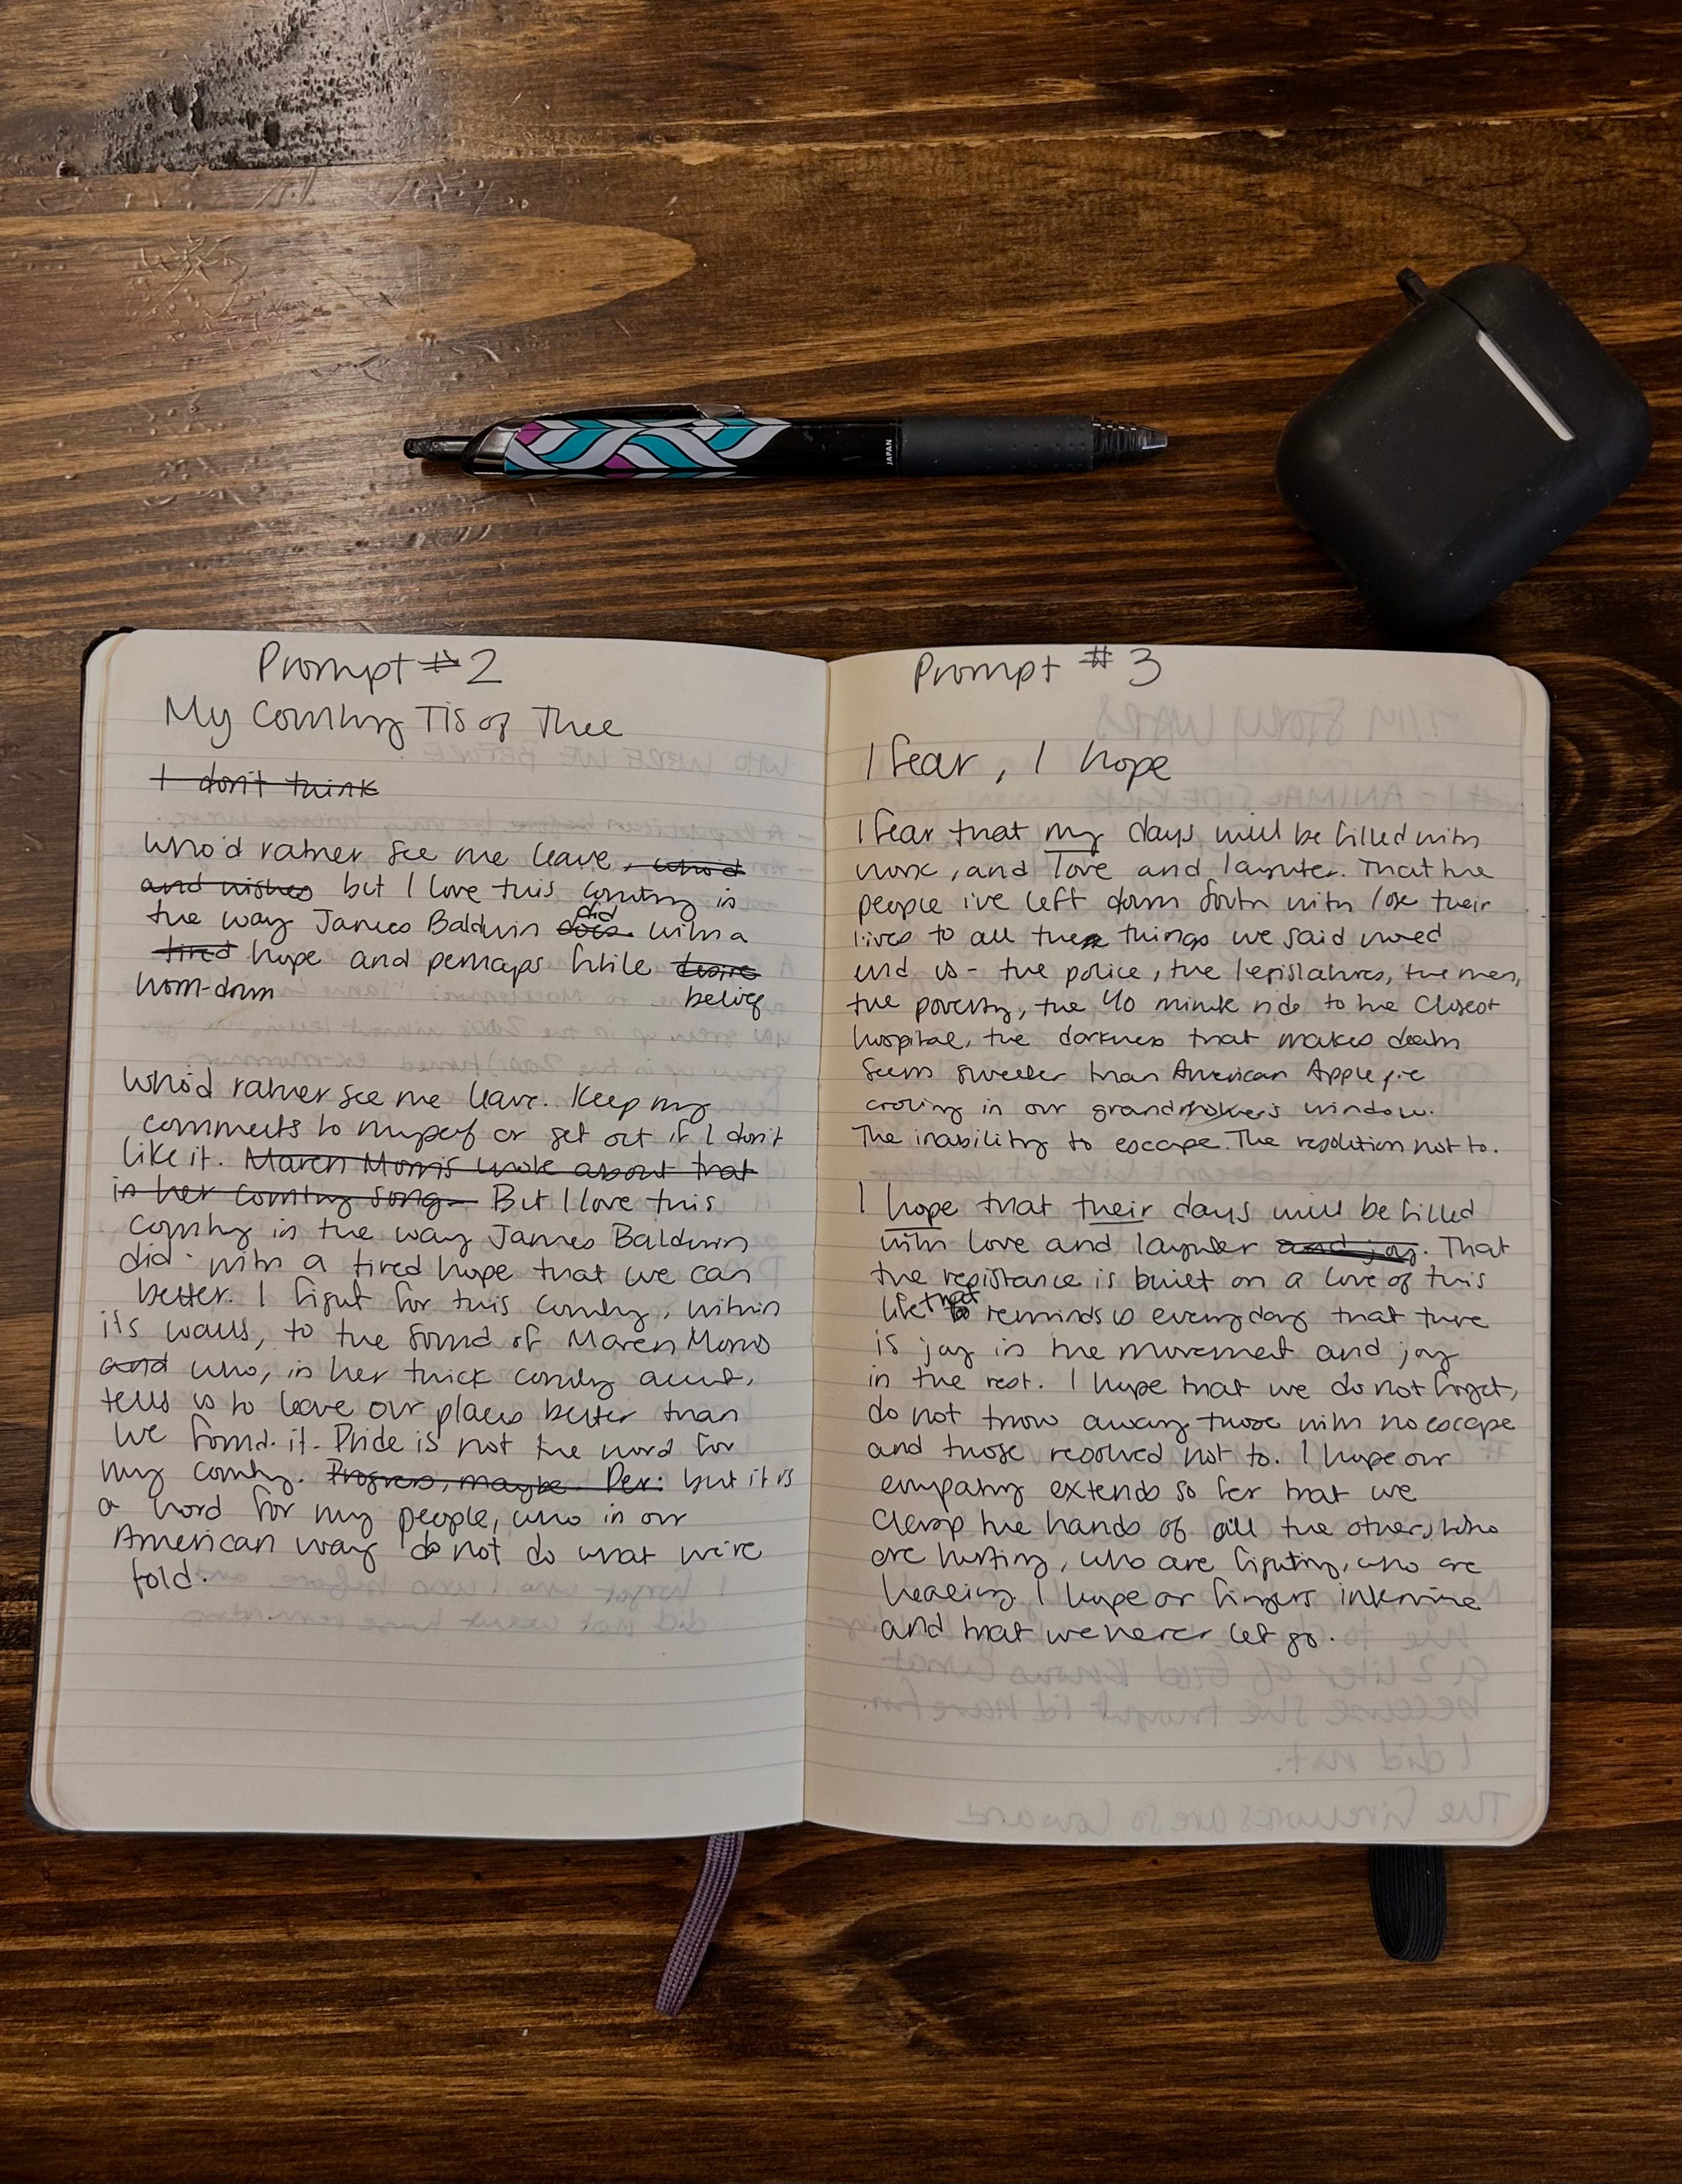 JAPAN
Prompt #2
My Country Tis of Thee
I don't think
Who'd rather see me leave, who'd
and wishes but I love this country in
the way James Baldwin does did with a
tired hope and perhaps futile desire
worn-down belief
Who'd rather see me leave. Keep my
comments to myself or get out if I don't
like it. Maren Morris wrote about that
in her country song. But I love this
country in the way James Baldwin
did - with a tired hope that we can
better. I fight for this country, within
its walls, to the sound of Maren Morris
and who, in her thick country accent,
tells us to leave our places better than
we found it. Pride is not the word for
my country. Progress, maybe. but it is
a word for my people, who in our
American way do not do what we're
told.
Prompt #3
I fear, I hope
I fear that my days will be filled with
work, and love and laughter. That the
people i've left down South with lose their
lives to all these things we said would
end us - the police, the legislatures, the men,
the poverty, the 40 minute ride to the closest
hospital, the darkness that makes death
seem sweeter than American Apple pie
cooling in our grandmother's window.
The inability to escape. The resolution not to.
I hope that their days will be filled
with love and laughter and joy. That
the resistance is built on a love of this
life that reminds us everyday that there
is joy in the movement and joy
in the rest. I hope that we do not forget,
do not throw away those with no escape
and those resolved not to. I hope our
empathy extends so far that we
clasp the hands of all the others, who
are hurting, who are fighting, who are
healing. I hope our fingers intertwine
and that we never let go.